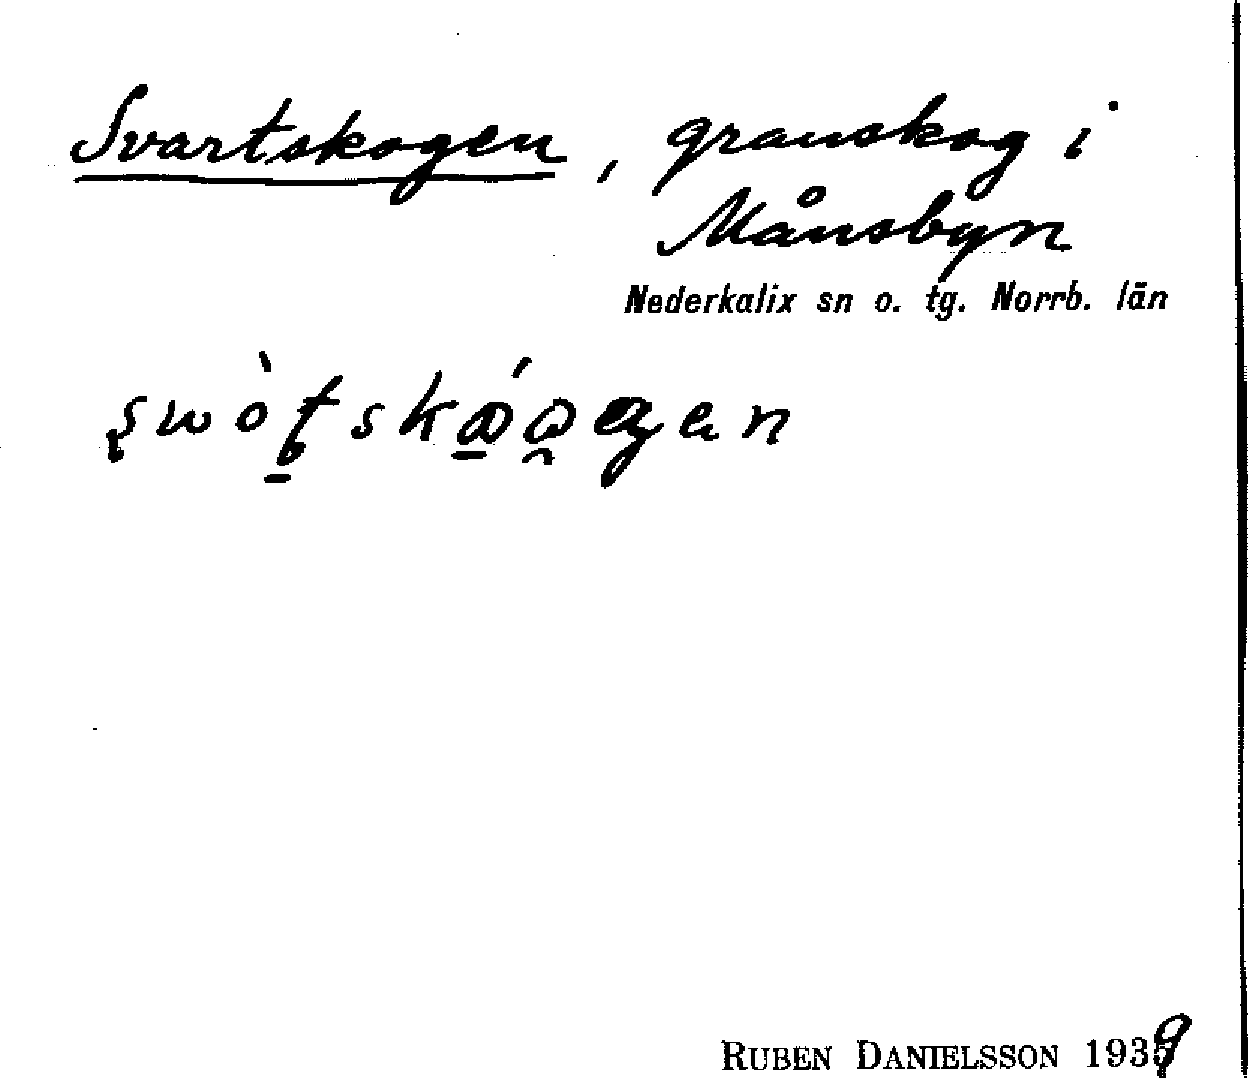 Svartskogen, granskog i
Månsbyn
Nederkalix sn o. tg. Norrb. län
RUBEN DANIELSSON 1939